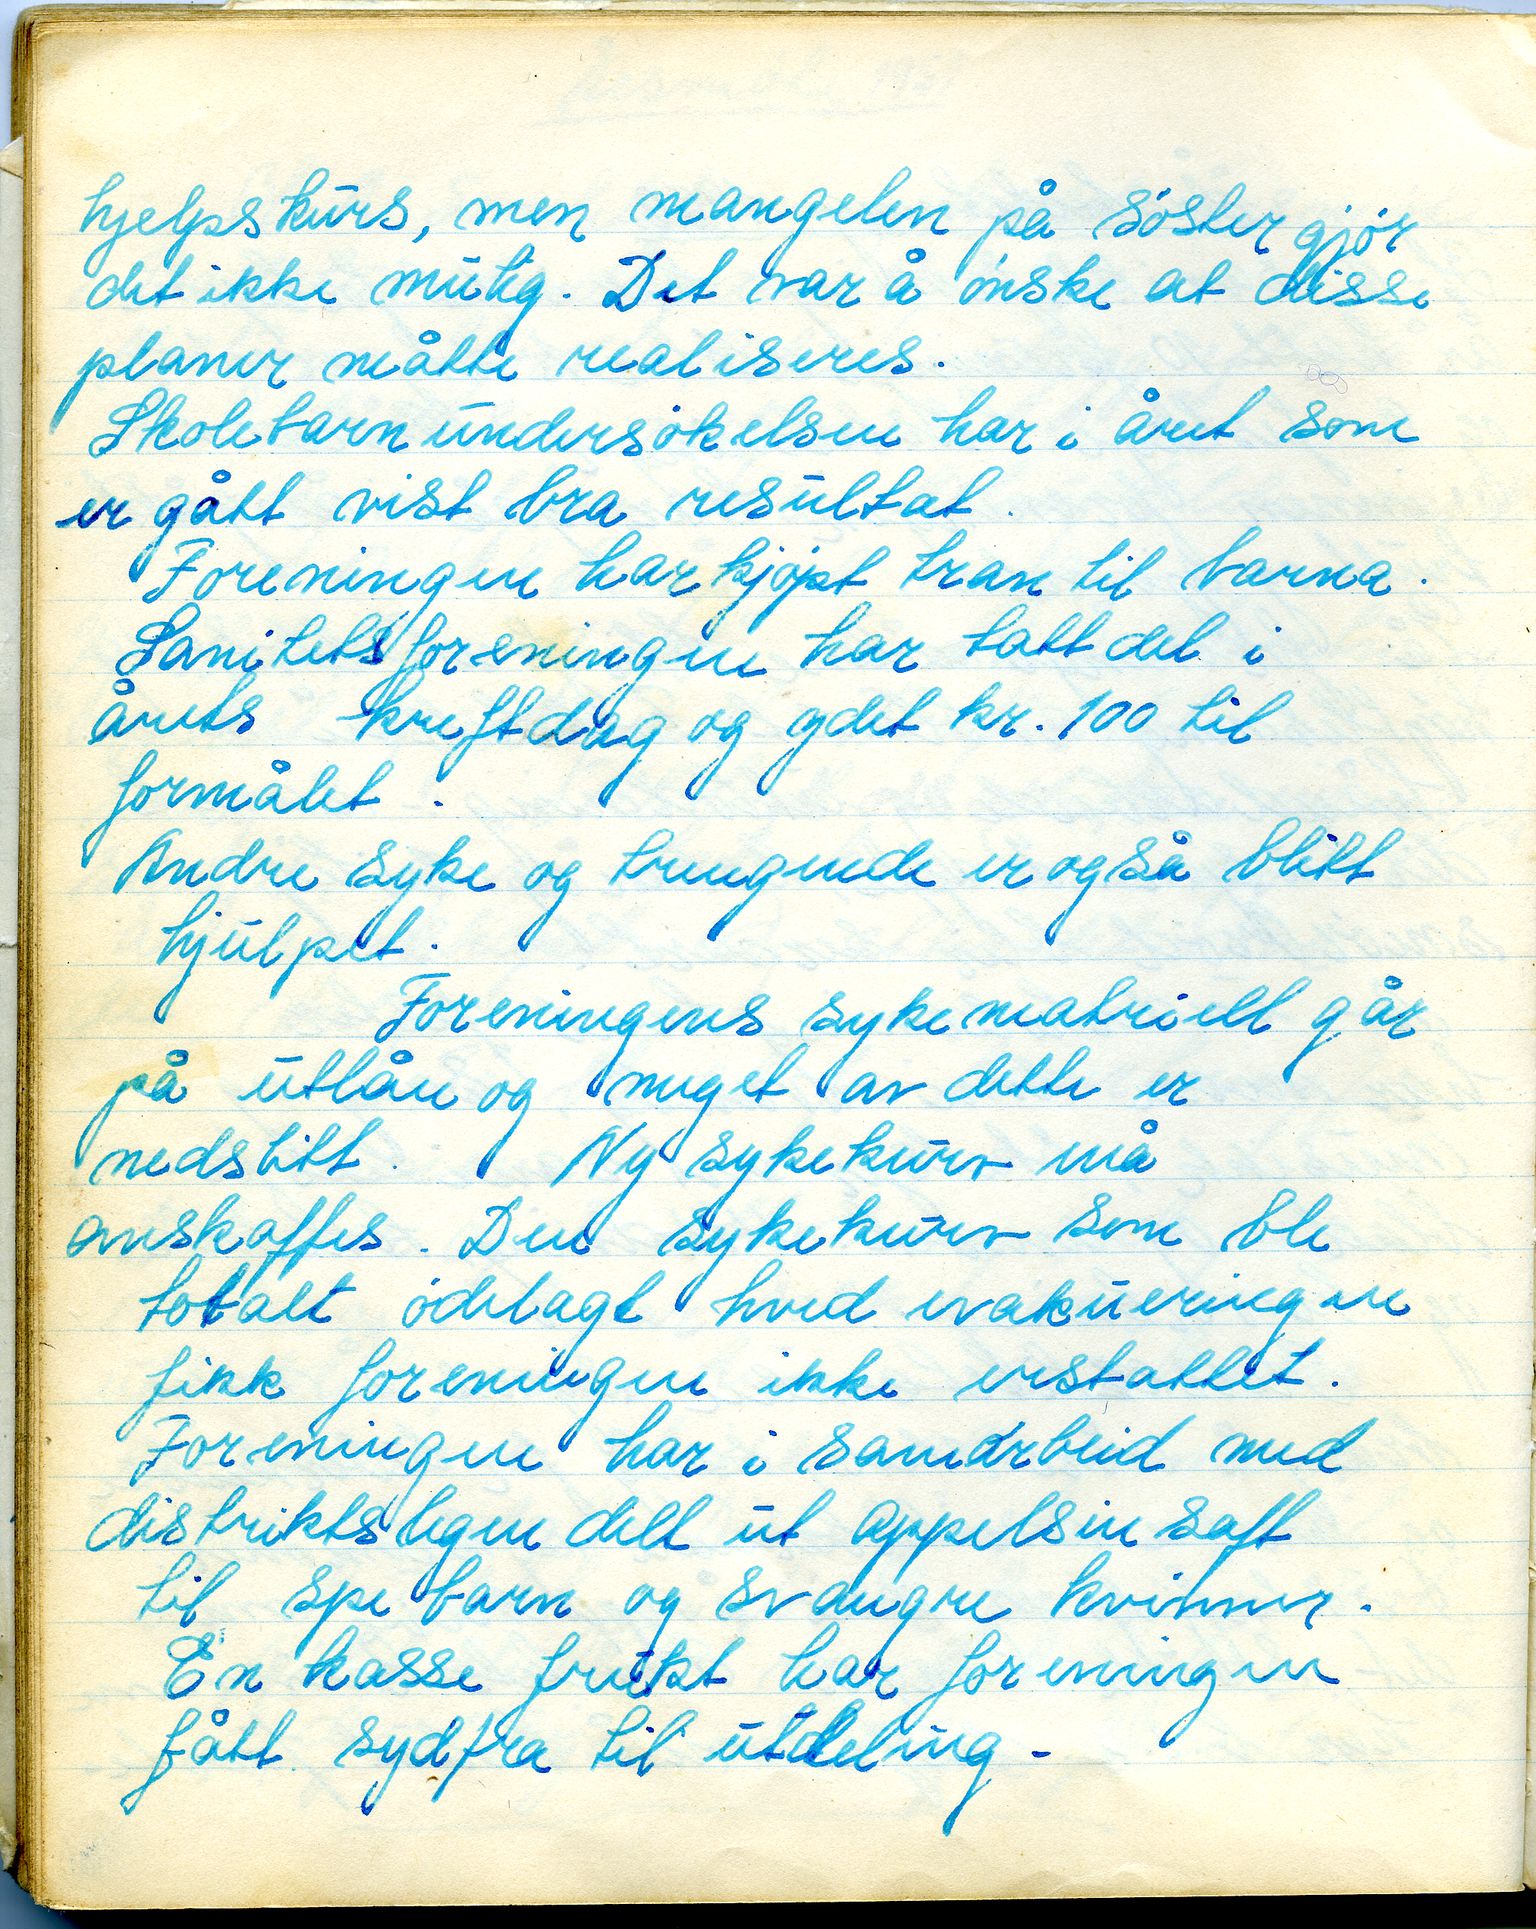 hjelpskurs, men mangelen på søster gjør
det ikke mulig. Det var å ønske at disse
planer måtte realiseres.
Skolebarnundersøkelsen har i året som
er gått vist bra resultat.
Foreningen har kjøpt tran til barna.
Sanitetsforeningen har tatt del i
årets kreftdag og ydet kr. 100 til
formålet.
Andre syke og trengende er også blitt
hjulpet.
Foreningens sykematriell går
på utlån og meget av dette er
nedslitt. Ny sykekurv må
anskaffes. Den sykekurv som ble
totalt ødelagt hved evakueringen
fikk foreningen ikke erstattet.
Foreningen har i samarbeid med
distriktslegen delt ut appelsinsaft
til spebarn og svangre kvinner.
En kasse frukt har foreningen
fått sydfra til utdeling.